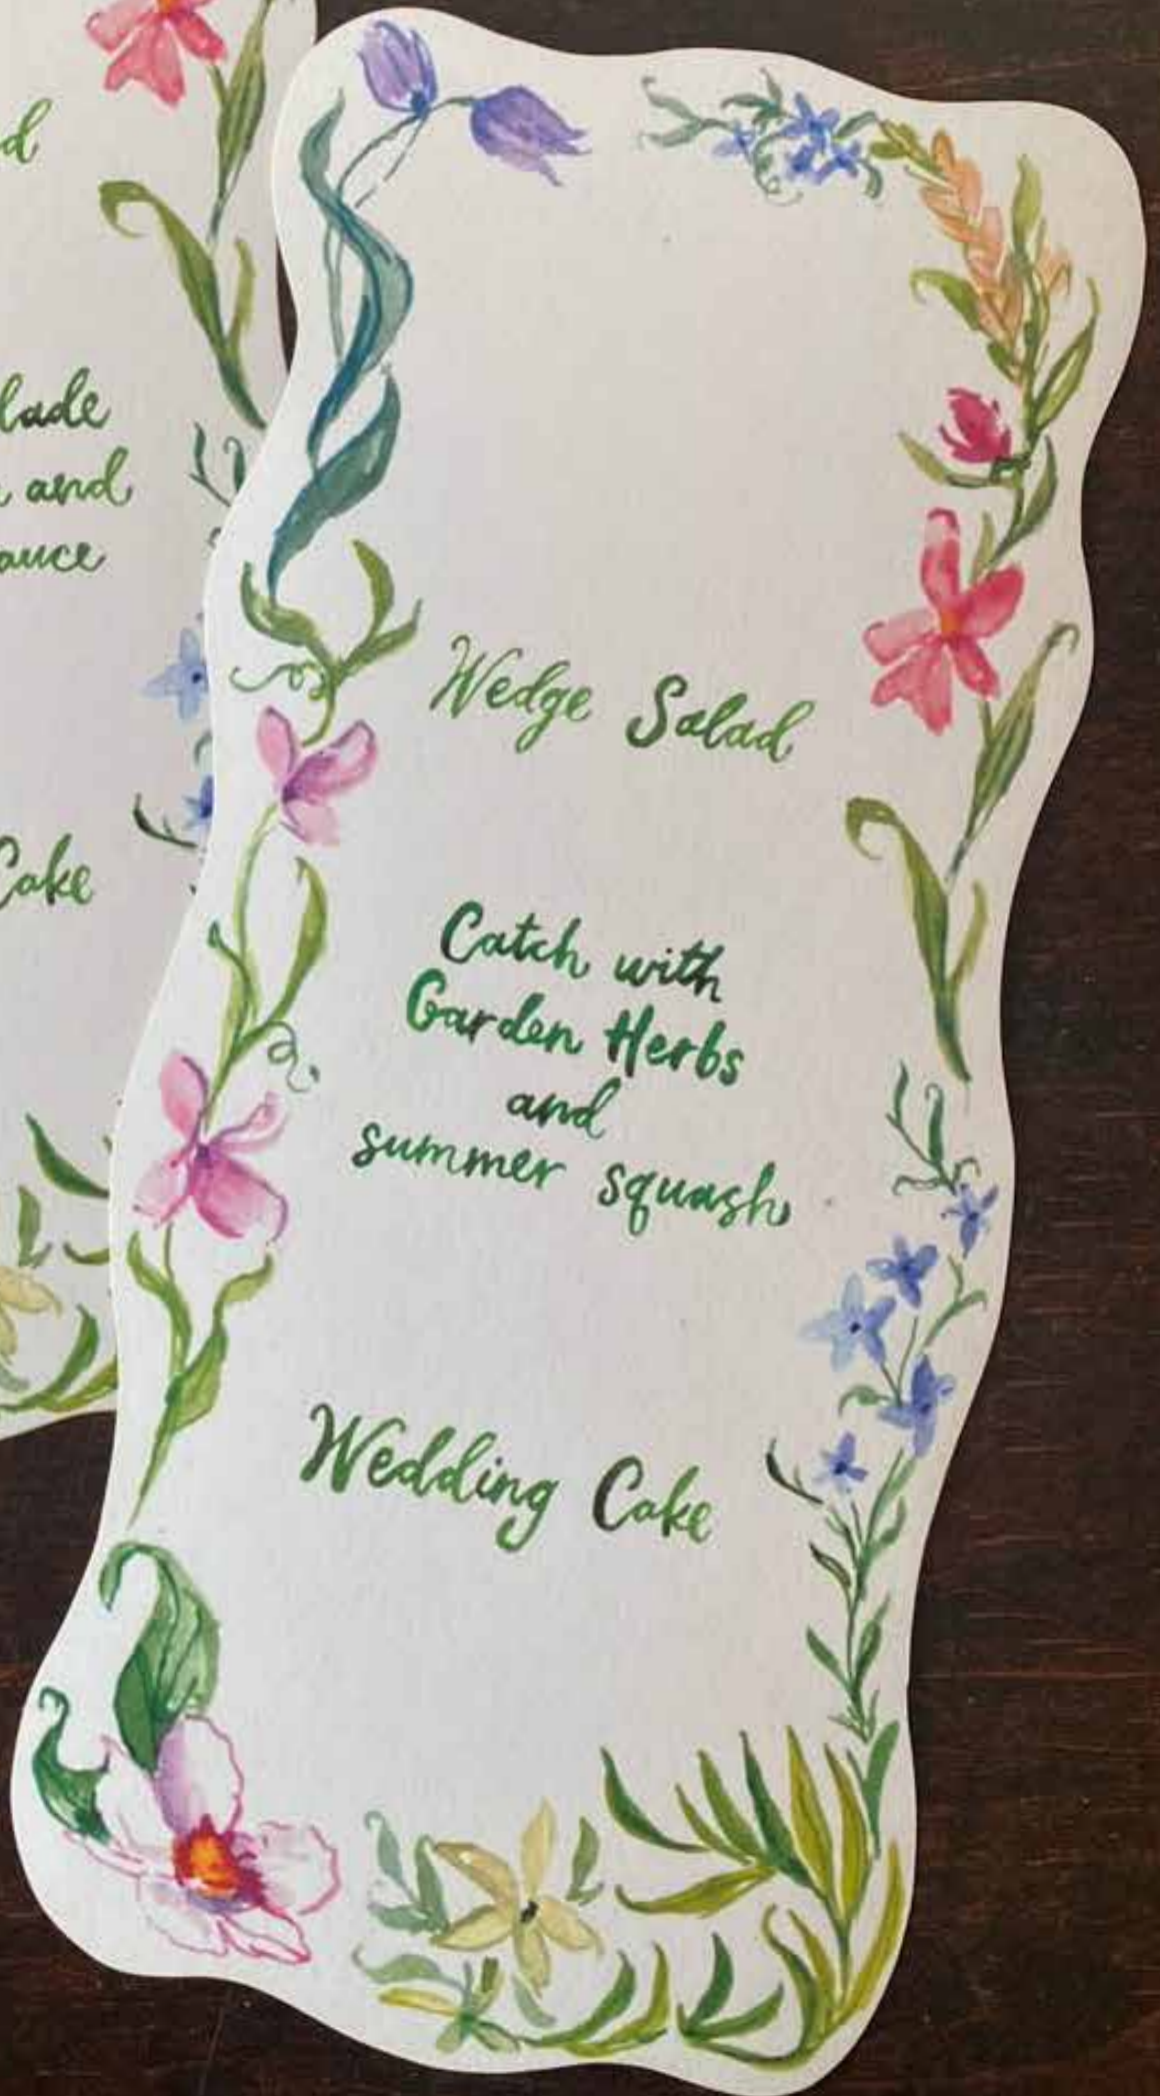 and
Cake
Wedge Salad
Catch with
Garden Herbs
and
summer squash
Wedding Cake